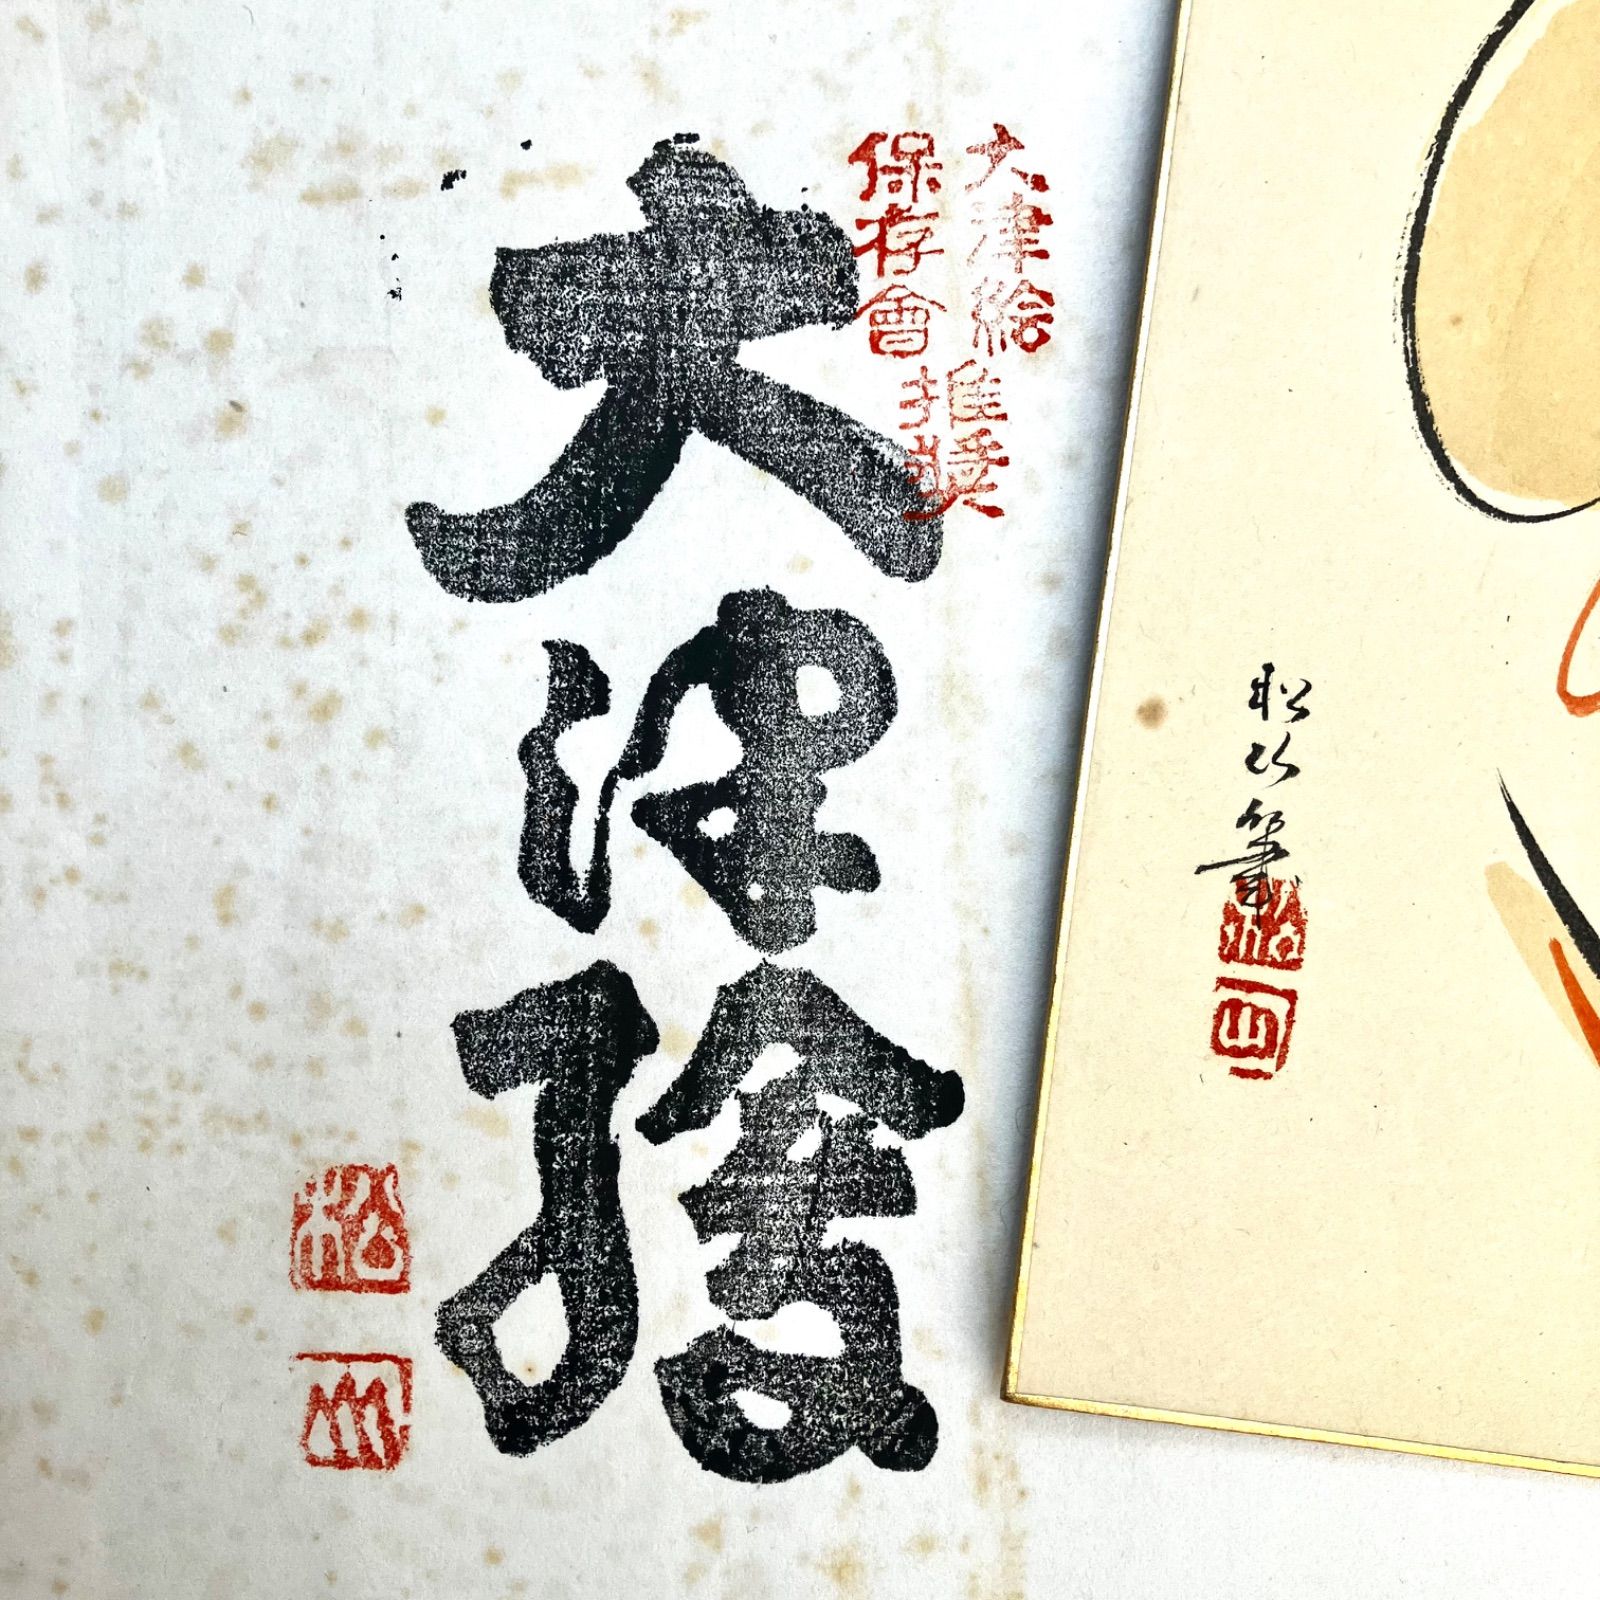 大津絵
保存會
推奨
大津繪
松
山
松山筆
松
山